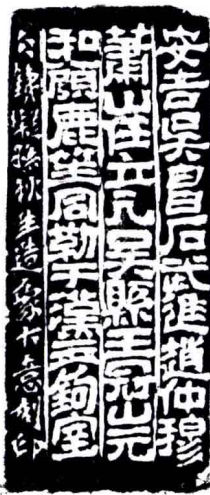 安吉吳昌石武進趙仲穆
蕭山任立凡吳縣王冠山元
和顧鹿笙同勒于漢玉鉤室
擬孫秋生造象大意刻印